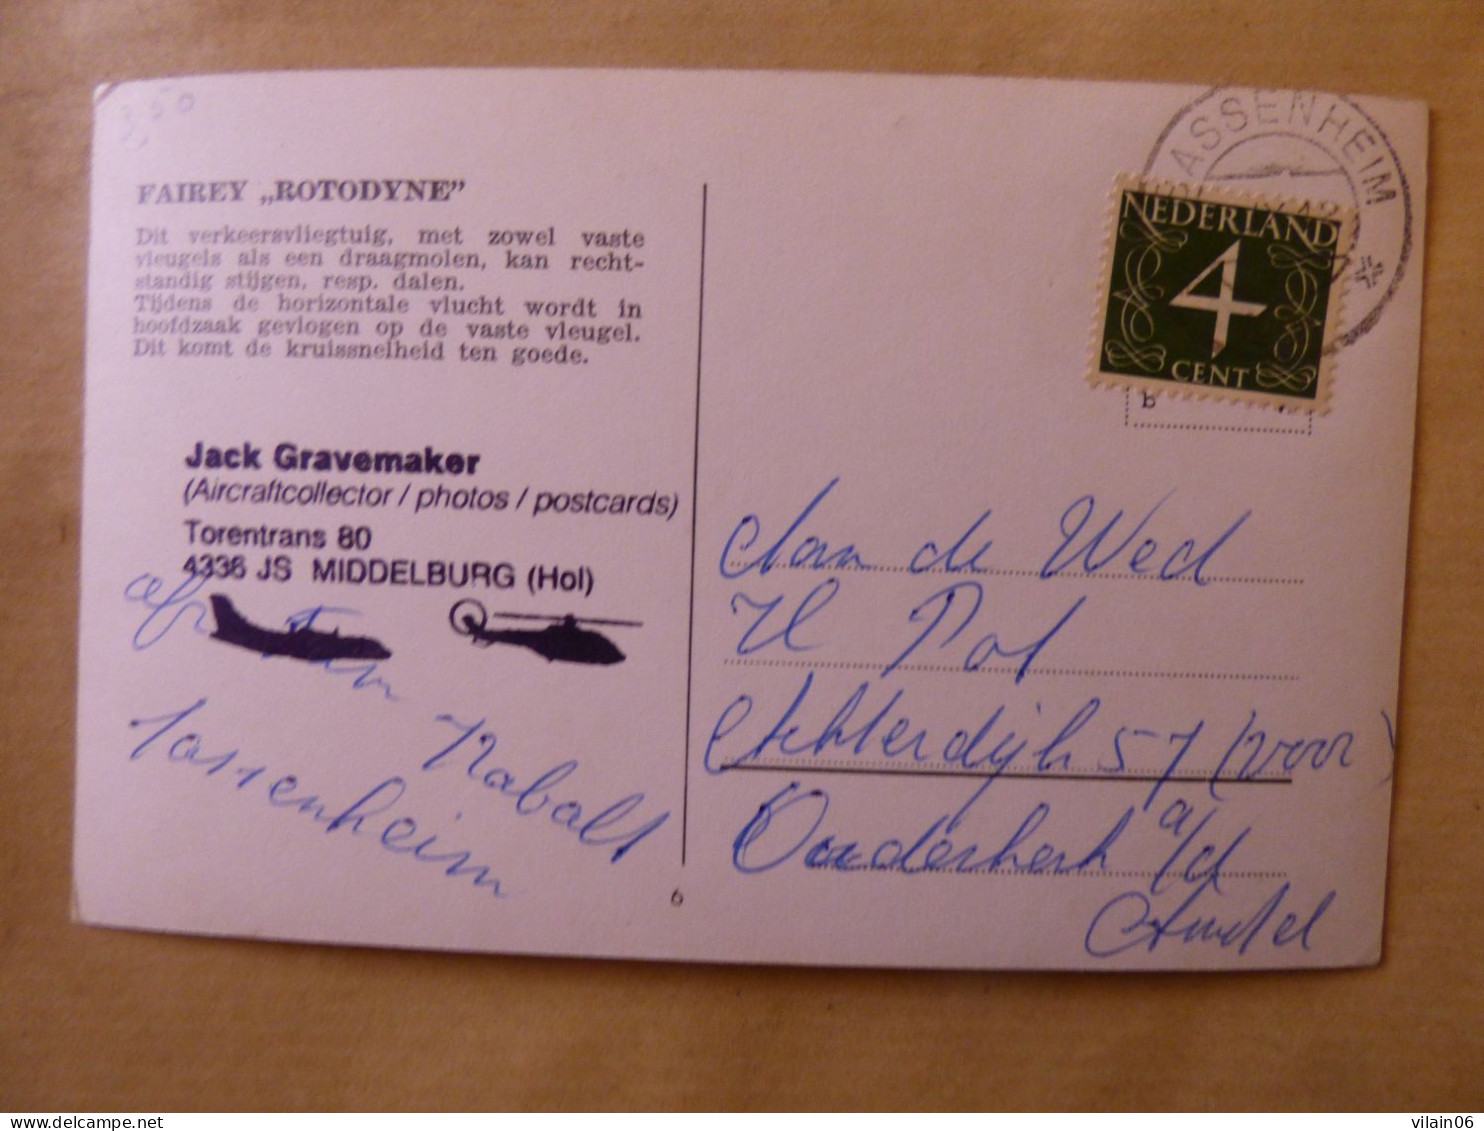 3,50
FAIREY „ROTODYNE”
Dit verkeersvliegtuig, met zowel vaste
vleugels als een draagmolen, kan recht-
standig stijgen, resp. dalen.
Tijdens de horizontale vlucht wordt in
hoofdzaak gevlogen op de vaste vleugel.
Dit komt de kruissnelheid ten goede.
Jack Gravemaker
(Aircraftcollector / photos / postcards)
Torentrans 80
4336 JS MIDDELBURG (Hol)
afz
Sassenheim
6
ASSENHEIM
NEDERLAND
4
CENT
b
de Wed
H Pol
Achterdijk 57 (voor)
Ouderkerk a/d
Amstel
delcampe.net
vilain06